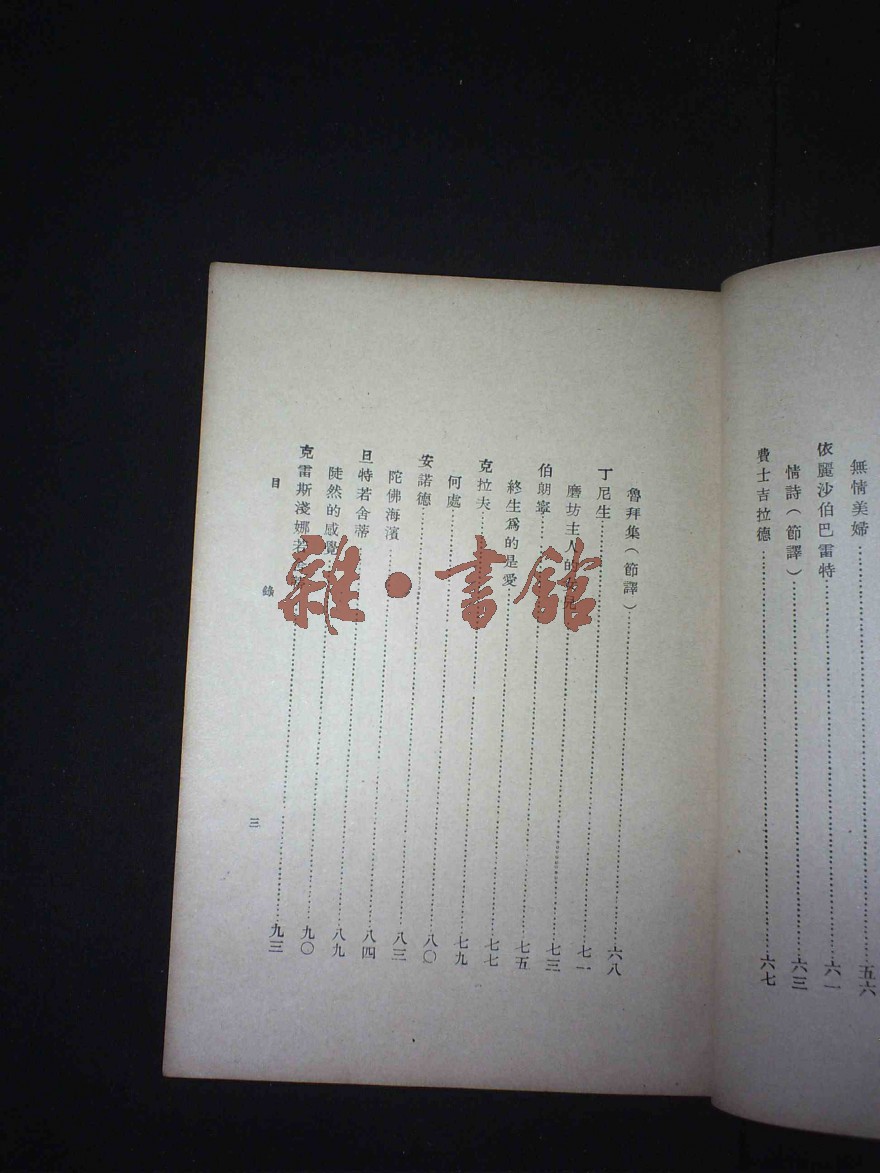 無情美婦……五六
依麗沙伯巴雷特……六一
情詩（節譯）……六三
費士吉拉德……六七
魯拜集（節譯）……六八
丁尼生……七一
磨坊主人的女兒……七三
伯朗寧……七五
終生爲的是愛……七七
克拉夫……七九
何處……八〇
安諾德……八三
陀佛海濱……八四
旦特若舍蒂……八九
陡然的感覺……九〇
克雷斯淺娜若……九三
目錄
三
雜·書館